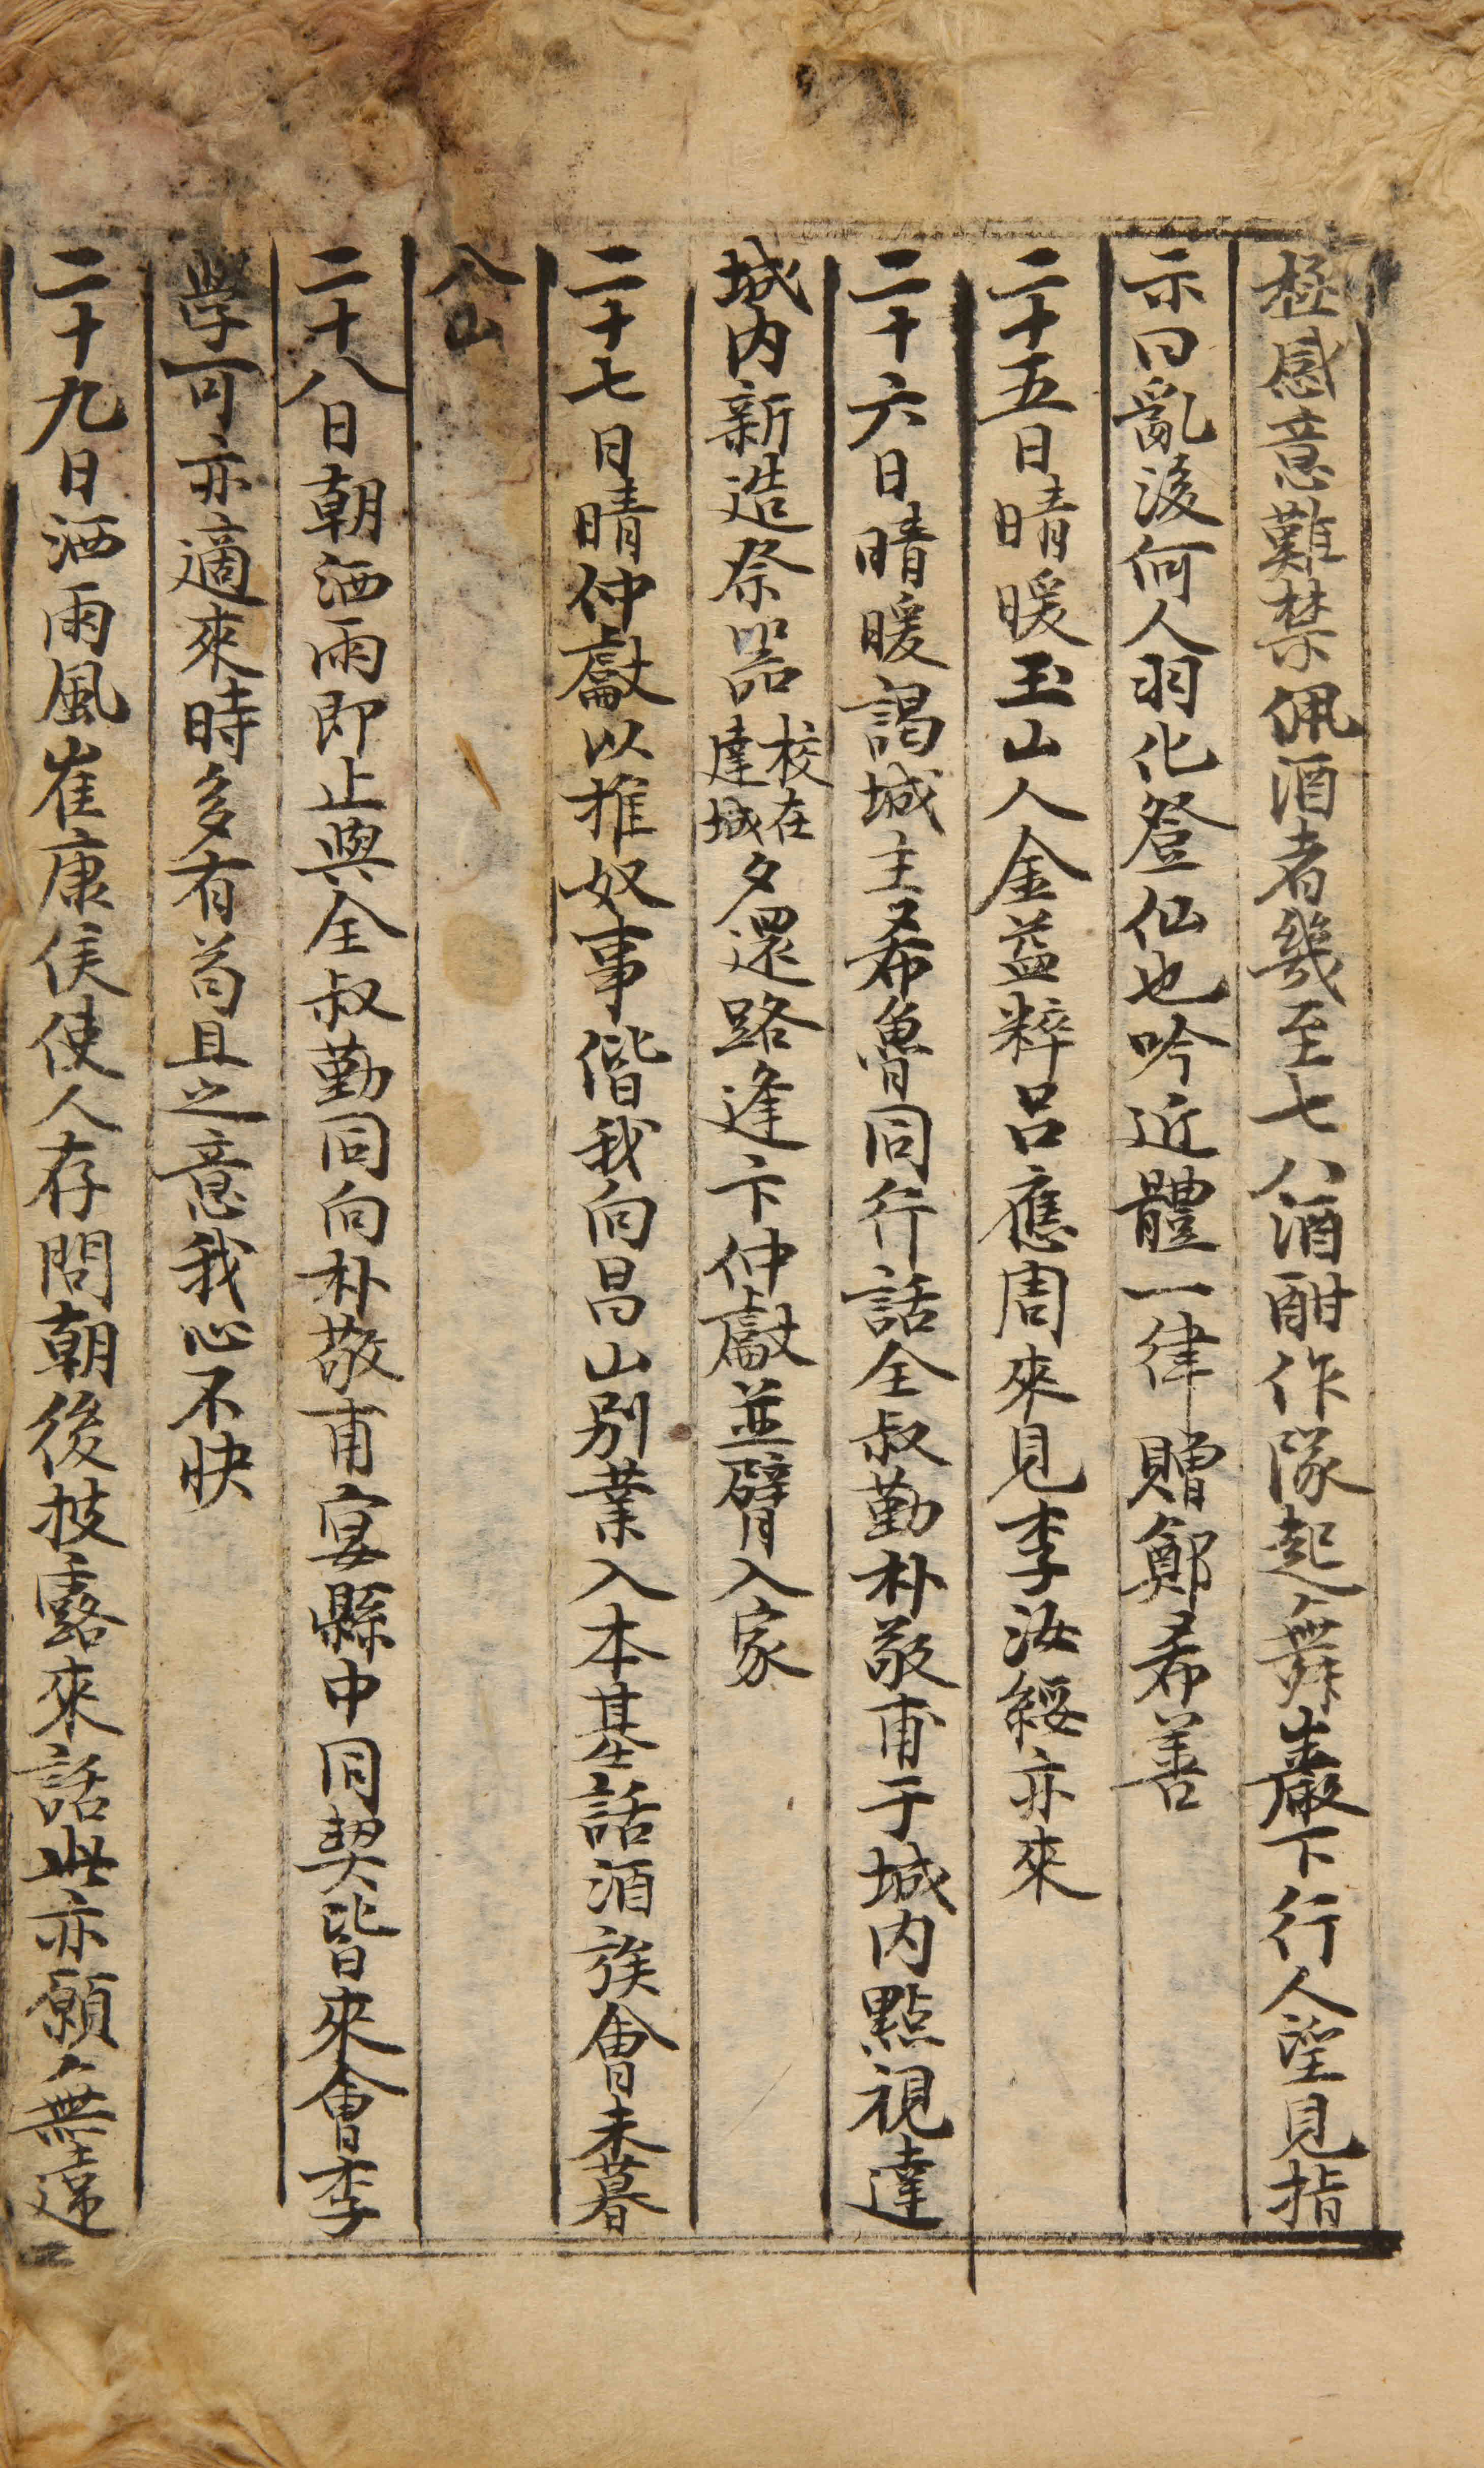 極感意難禁佩酒者幾至七八酒酣作隊起舞巖下行人望見指
示曰亂後何人羽化登仙也吟近體一律贈鄭希善
二十五日晴暖玉山人金益粹呂應周來見李汝綏亦來
二十六日晴暖謁城主希魯同行話全叔勤朴敬甫于城内點視達
城内新造祭器校在達城夕還路逢卞仲獻並臂入家
二十七日晴仲獻以推奴事偕我向昌山別業入本基話酒族會未暮
入山
二十八日朝洒雨即止與全叔勤同向朴敬甫宴縣中同契皆來會李
学可亦適來時多有苟且之意我心不快
二十九日洒雨風崔康侯使人存問朝後技露來話此亦願無違